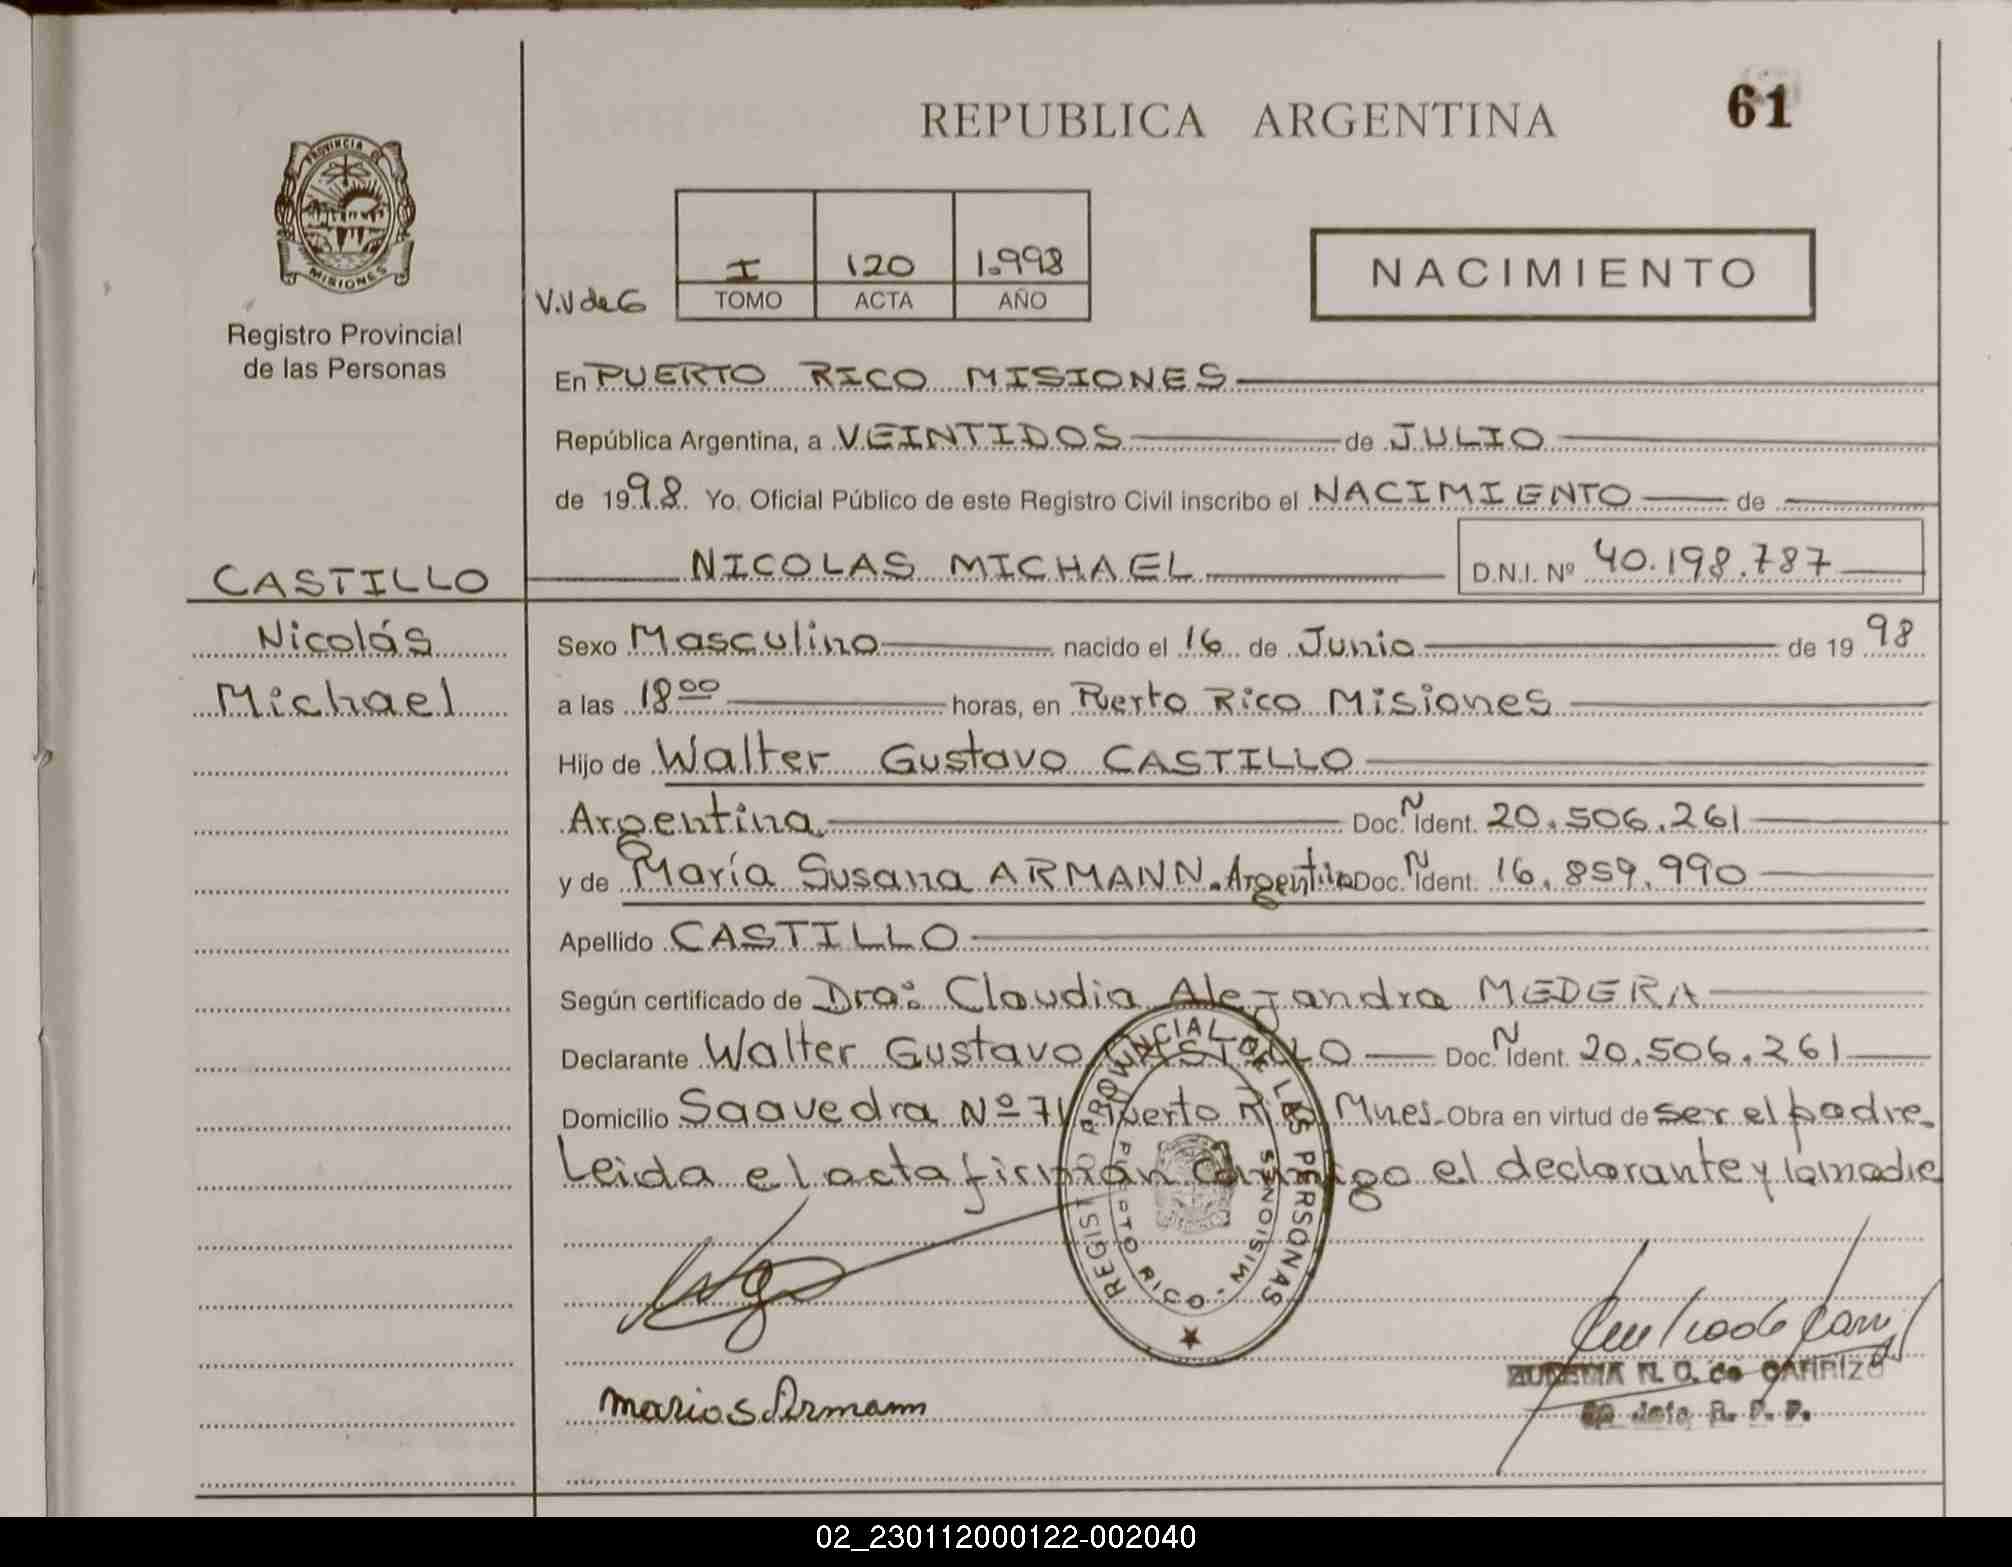 REPUBLICA ARGENTINA
61
PROVINCIA DE
MISIONES
Registro Provincial
de las Personas
V.V de G
I 120 1.998
TOMO ACTA AÑO
NACIMIENTO
En PUERTO RICO MISIONES
República Argentina, a VEINTIDOS de JULIO
de 1998. Yo, Oficial Público de este Registro Civil inscribo el NACIMIENTO de
CASTILLO
NICOLAS MICHAEL D.N.I. Nº 40.198.787
Nicolás
Michael
Sexo Masculino nacido el 16 de Junio de 1998
a las 18 00 horas, en Puerto Rico Misiones
Hijo de Walter Gustavo CASTILLO
Argentina Doc. N Ident. 20.506.261
y de María Susana ARMANN. Argentina Doc. N Ident. 16.859.990
Apellido CASTILLO
Según certificado de Dra: Claudia Alejandra MEDERA
Declarante Walter Gustavo CASTILLO Doc. N Ident. 20.506.261
Domicilio Saavedra Nº 71 Puerto Rico Mnes. Obra en virtud de ser el padre.
Leida el acta firman conmigo el declarante y la madre
REGISTRO PROVINCIAL DE LAS PERSONAS
PTO RICO - MISIONES
Maria S Armann
N. O. de CARRIZO
Jefe R. P. P.
02_230112000122-002040